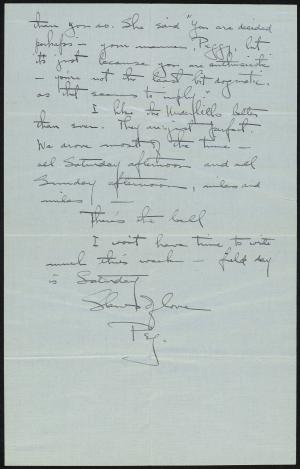 than you so. She said "You are decided
perhaps – your manner, Peggy, but
it's just because you are enthusiastic
– you're not the least bit dogmatic,
as that seems to imply."
I like the Underhills better
than ever. They are just perfect.
We drove most of the time –
all Saturday afternoon and all
Sunday afternoon, miles and
miles —
There's the bell
I won't have time to write
much this week – field day
is Saturday
Slews of love
Peg.